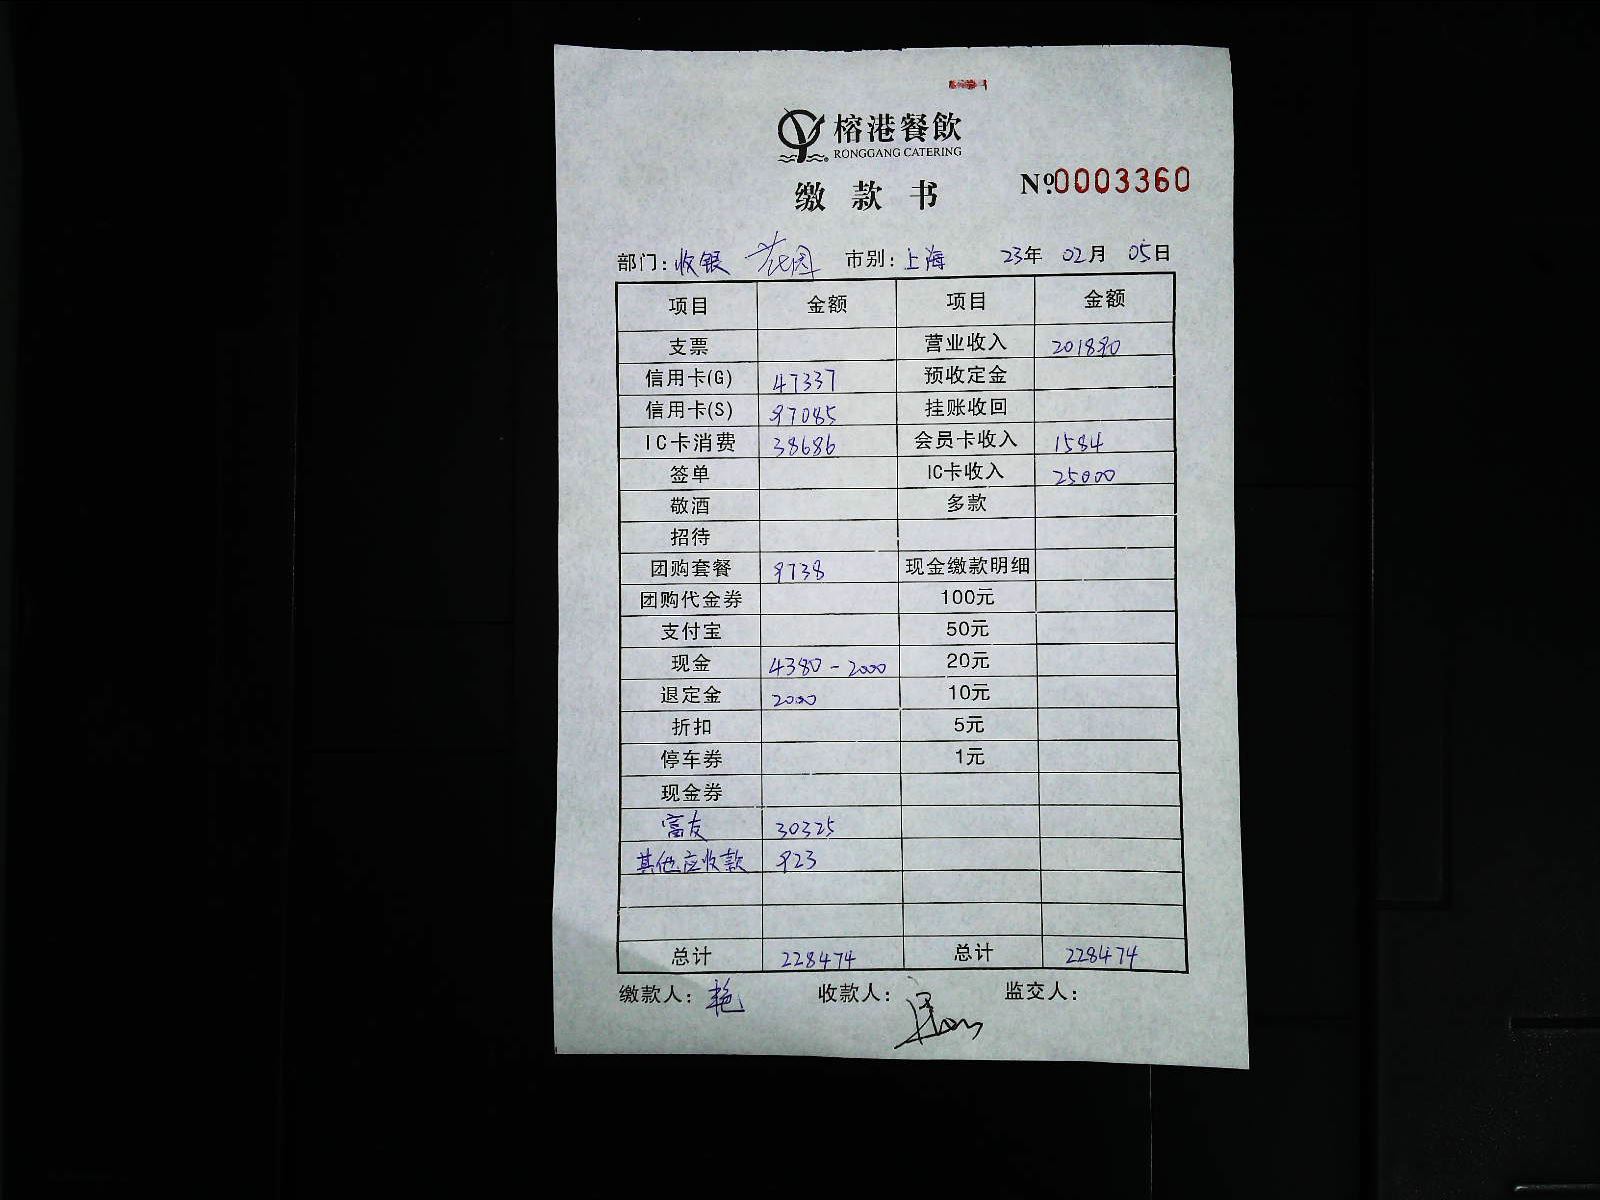 榕港餐飲
RONGGANG CATERING
缴款书
№.0003360
部门:收银 花园 市别:上海 23年 02月 05日
项目 金额 项目 金额
支票 营业收入 201890
信用卡(G) 47337 预收定金
信用卡(S) 97085 挂账收回
IC卡消费 38686 会员卡收入 1584
签单 IC卡收入 25000
敬酒 多款
招待
团购套餐 9738 现金缴款明细
团购代金券 100元
支付宝 50元
现金 4380-2000 20元
退定金 2000 10元
折扣 5元
停车券 1元
现金券
富友 30325
其他应收款 923
总计 228474 总计 228474
缴款人:艳 收款人: 监交人: